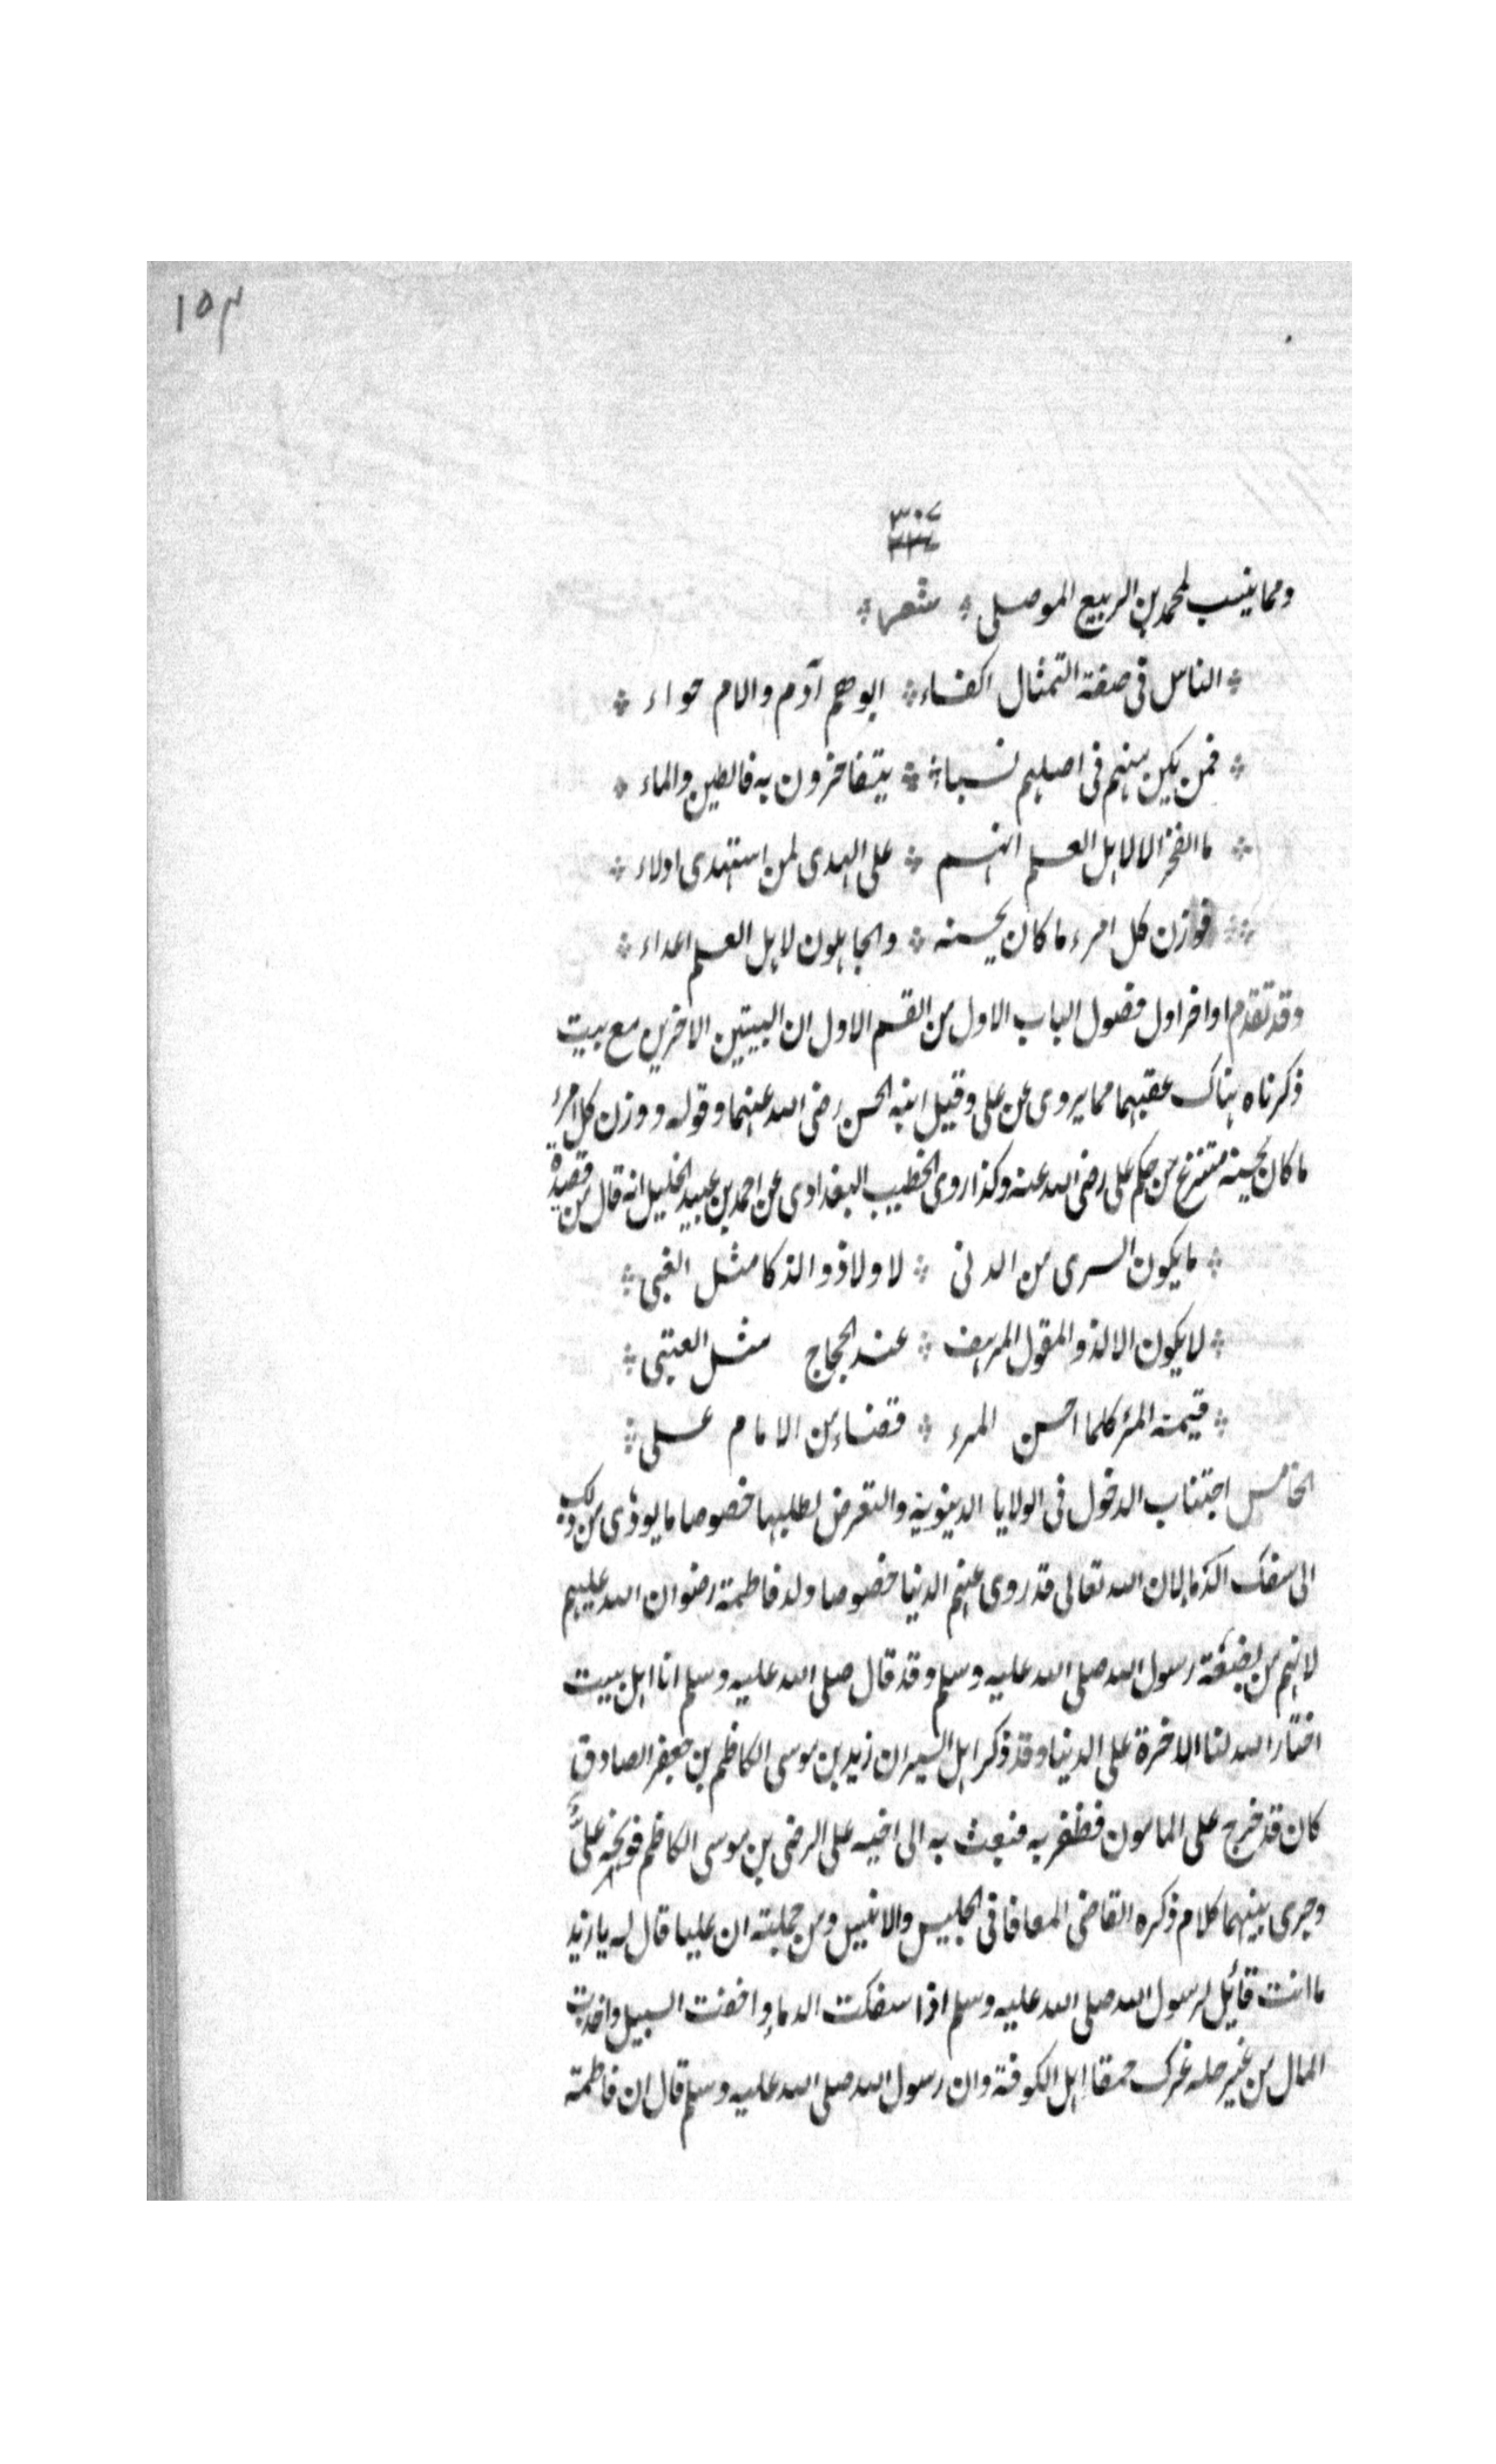 ١٥٣
٣٠٧
ومما ينسب لمحمد بن الربيع الموصلى * شعر *
* الناس فى صفة التمثال اكفاء * ابوهم آدم والام حواء *
* فمن يكن منهم فى اصلهم نسباء * يتفاخرون به فالطين والماء *
* ما الفخر الا لاهل العلم انهم * على الهدى لمن استهدى ادلاء *
* فوازن كل امرء ما كان يحسنه * والجاهلون لاهل العلم اعداء *
وقد تقدم اواخر اول فصول الباب الاول من القسم الاول ان البيتين الاخرين مع بيت
ذكرناه هناك عقبهما مما يروى عن على وقيل ابنه الحسن رضى الله عنهما وقوله ووزن كل امرء
ما كان يحسنه منتزع من حكم على رضى الله عنه وكذا روى الخطيب البغدادى عن احمد بن عبيد الخليل انه قال من قصيدة
* ما يكون السرى من الدنى * لا ولا ذو الذكا مثل الغبى *
* لا يكون الالد ذو المقول المرهف * عند الحجاج مثل العيى *
* قيمة المرء كلما احسن المرء * قضاء من الامام على *
الخامس اجتناب الدخول فى الولايا الدينوية والتعرض لطلبها خصوصا ما يودى من ذلك
الى سفك الدماء لان الله تعالى قد زوى عنهم الدنيا خصوصا ولد فاطمة رضوان الله عليهم
لانهم من بضعة رسول الله صلى الله عليه وسلم وقد قال صلى الله عليه وسلم انا اهل بيت
اختار الله لنا الاخرة على الدنيا وقد ذكر اهل السير ان زيد بن موسى الكاظم بن جعفر الصادق
كان قد خرج على المامون فظفر به فبعث به الى اخيه على الرضى بن موسى الكاظم فوبخه على
وجرى بينهما كلام ذكره القاضى المعافا فى الجليس والانيس ومن جملته ان عليا قال له يا زيد
ما انت قائل لرسول الله صلى الله عليه وسلم اذا سفكت الدماء واخفت السبيل واخذت
المال من غير حله غرك حمقا اهل الكوفة وان رسول الله صلى الله عليه وسلم قال ان فاطمة